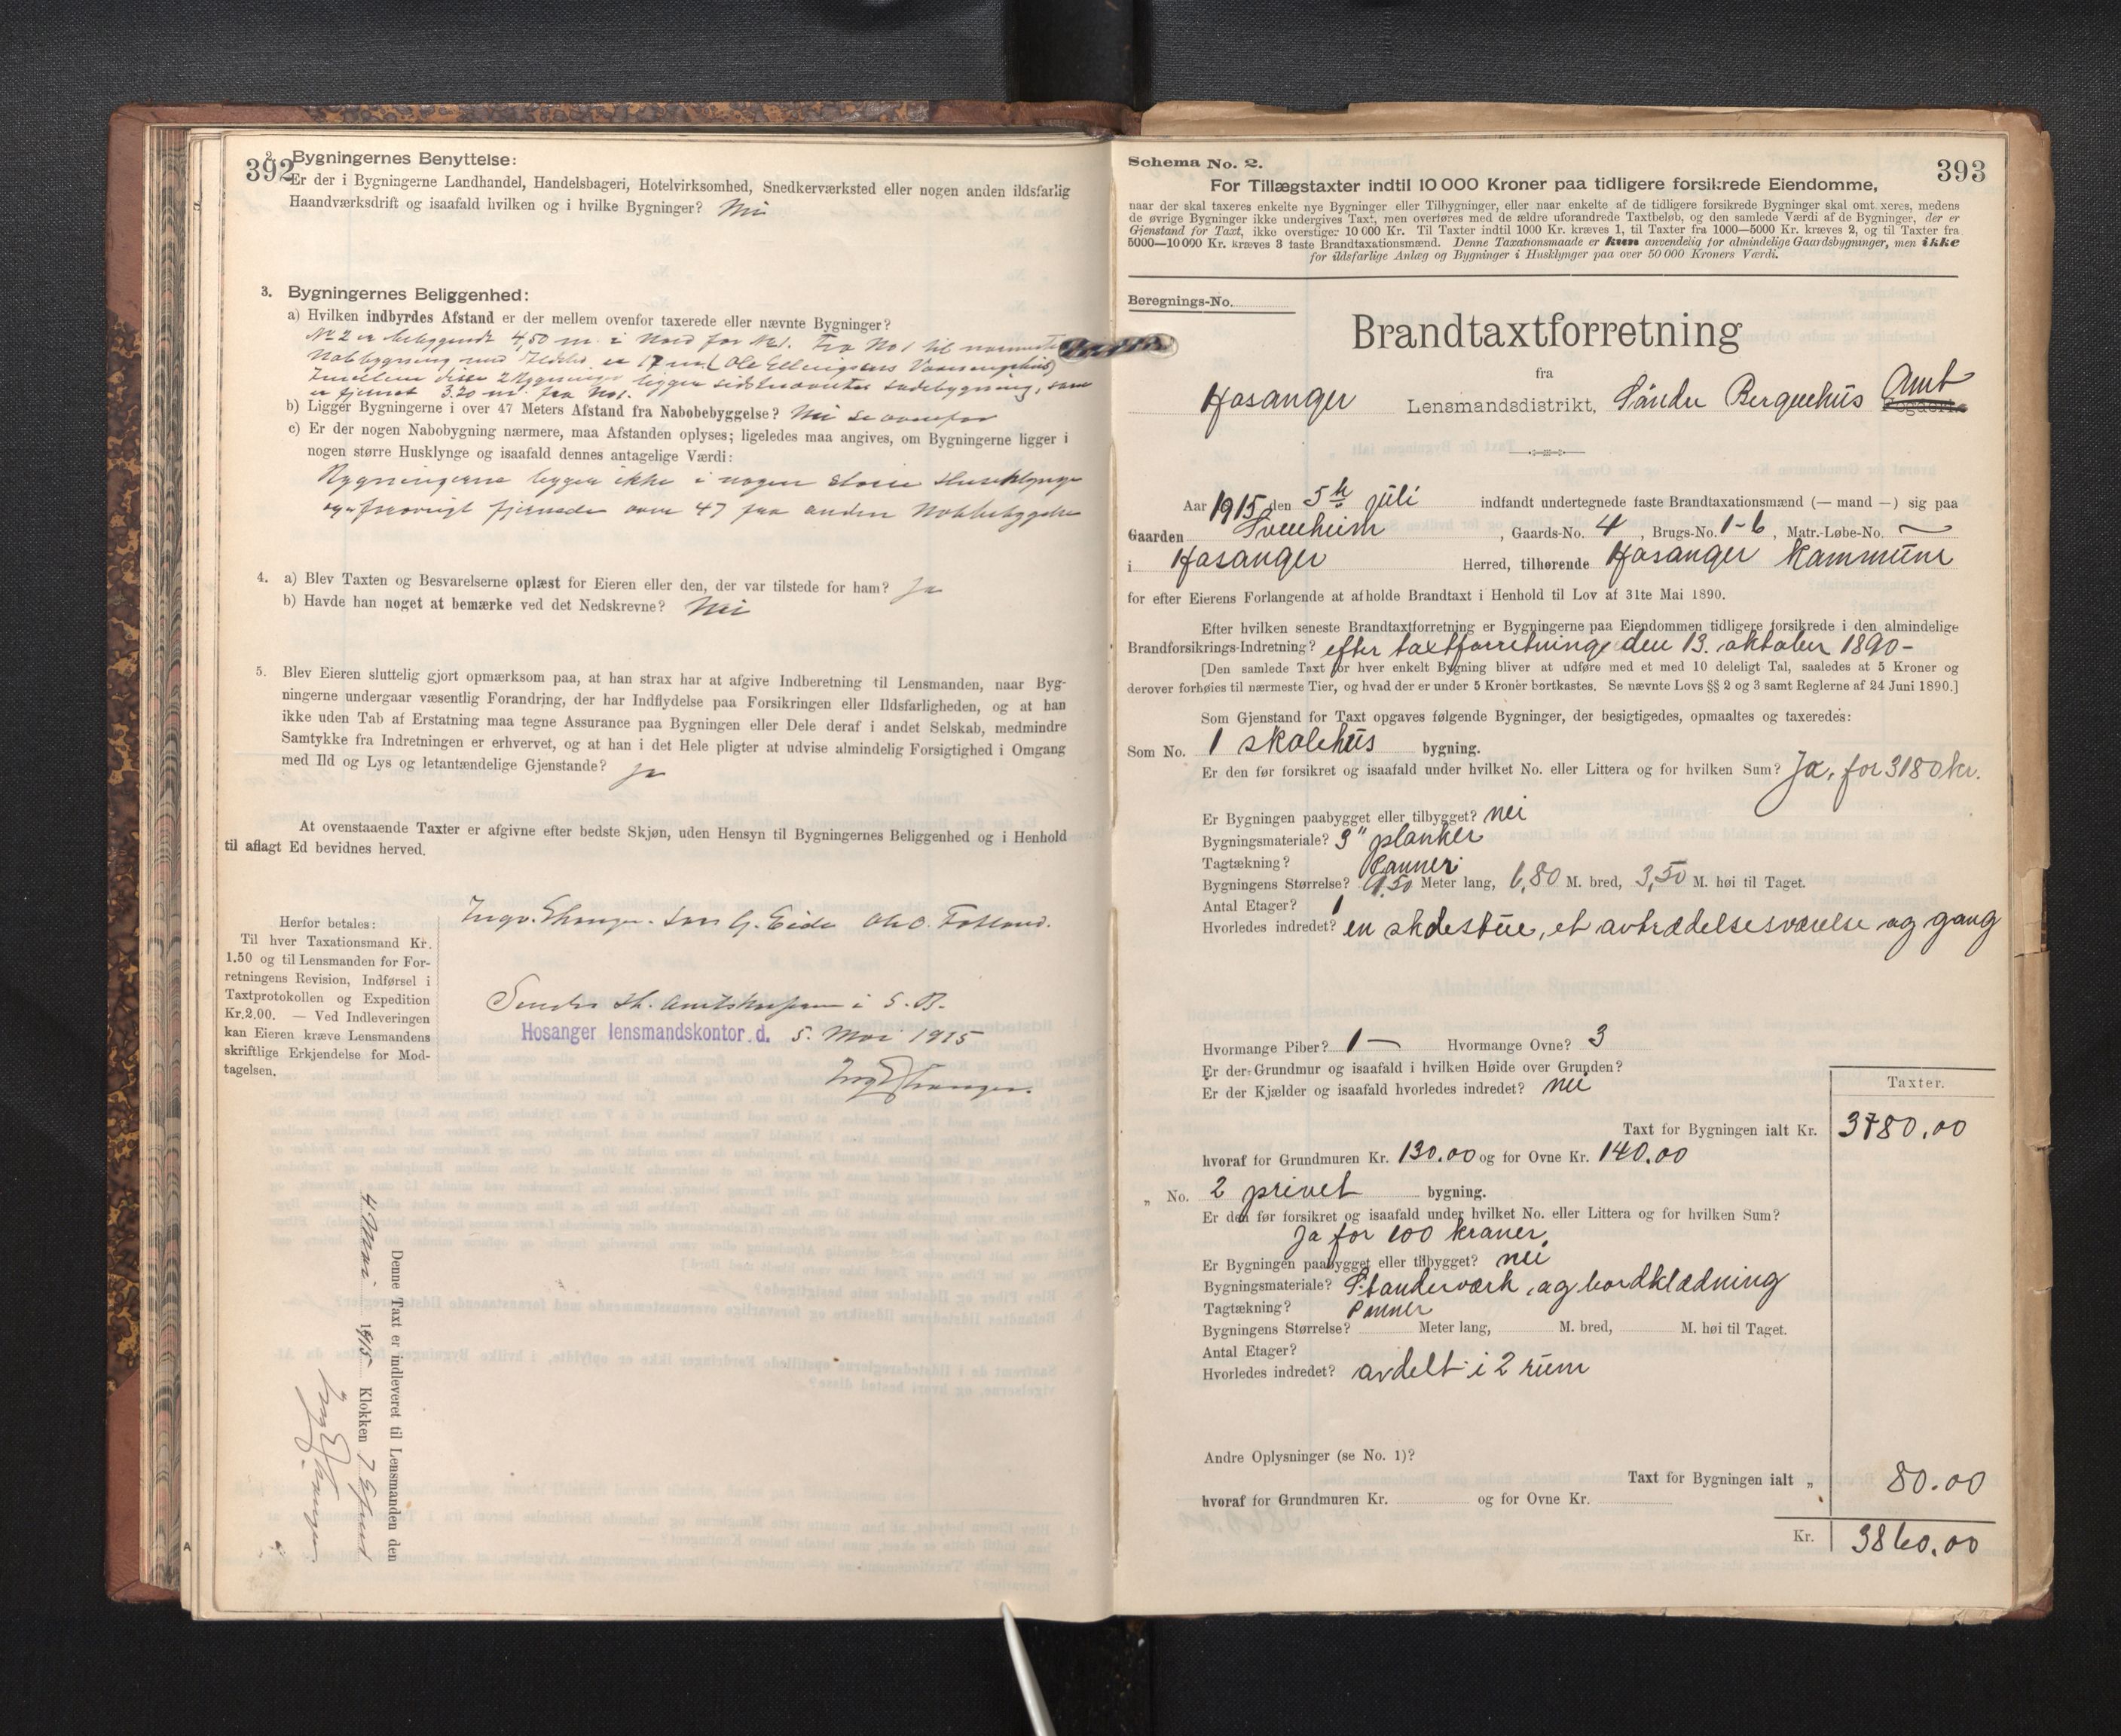 392
2. Bygningernes Benyttelse:
Er der i Bygningerne Landhandel, Handelsbageri, Hotelvirksomhed, Snedkerværksted eller nogen anden ildsfarlig
Haandværksdrift og isaafald hvilken og i hvilke Bygninger? Nei
3. Bygningernes Beliggenhed:
a) Hvilken indbyrdes Afstand er der mellem ovenfor taxerede eller nævnte Bygninger?
No 2 er beliggende 4,50 m. i Nord for No 1. Fra No 1 til nærmeste
Nabbygning med Ildsted er 17 m. (Ole Ellingsens Vaaningshus)
Imellem disse 2 Bygninger ligger sidstnævntes ladebygning, som
er fjernet 3.20 m. fra No 1.
b) Ligger Bygningerne i over 47 Meters Afstand fra Nabobebyggelse? Nei se ovenfor
c) Er der nogen Nabobygning nærmere, maa Afstanden oplyses; ligeledes maa angives, om Bygningerne ligger i
nogen større Husklynge og isaafald dennes antagelige Værdi:
Bygningerne ligger ikke i nogen større Husklynge
og forøvrigt fjernede over 47 fra anden Nabbebyggelse
4. a) Blev Taxten og Besvarelserne oplæst for Eieren eller den, der var tilstede for ham? Ja
b) Havde han noget at bemærke ved det Nedskrevne? Nei
5. Blev Eieren sluttelig gjort opmærksom paa, at han strax har at afgive Indberetning til Lensmanden, naar Byg-
ningerne undergaar væsentlig Forandring, der har Indflydelse paa Forsikringen eller Ildsfarligheden, og at han
ikke uden Tab af Erstatning maa tegne Assurance paa Bygningen eller Dele deraf i andet Selskab, medmindre
Samtykke fra Indretningen er erhvervet, og at han i det Hele pligter at udvise almindelig Forsigtighed i Omgang
med Ild og Lys og letantændelige Gjenstande? Ja
At ovenstaaende Taxter er afgivne efter bedste Skjøn, uden Hensyn til Bygningernes Beliggenhed og i Henhold
til aflagt Ed bevidnes herved.
Herfor betales:
Til hver Taxationsmand Kr.
1.50 og til Lensmanden for For-
retningens Revision, Indførsel i
Taxtprotokollen og Expedition
Kr. 2.00. — Ved Indleveringen
kan Eieren kræve Lensmandens
skriftlige Erkjendelse for Mod-
tagelsen.
G. Eide Ole O. Fotland.
Sendes Hr. Amtskassereren i S. B.
Hosanger lensmandskontor d. 5. Mai 1915
Denne Taxt er indleveret til Lensmanden den
4 Mai 1915 Klokken 7
Schema No. 2.
393
For Tillægstaxter indtil 10 000 Kroner paa tidligere forsikrede Eiendomme,
naar der skal taxeres enkelte nye Bygninger eller Tilbygninger, eller naar enkelte af de tidligere forsikrede Bygninger skal omtaxeres, medens
de øvrige Bygninger ikke undergives Taxt, men overføres med de ældre uforandrede Taxtbeløb, og den samlede Værdi af de Bygninger, der er
Gjenstand for Taxt, ikke overstiger 10 000 Kr. Til Taxter indtil 1000 Kr. kræves 1, til Taxter fra 1000—5000 Kr. kræves 2, og til Taxter fra
5000—10 000 Kr. kræves 3 faste Brandtaxationsmænd. Denne Taxationsmaade er kun anvendelig for almindelige Gaardsbygninger, men ikke
for ildsfarlige Anlæg og Bygninger i Husklynger paa over 50 000 Kroners Værdi.
Beregnings-No.
Brandtaxtforretning
fra
Hosanger Lensmandsdistrikt, Søndre Bergenhus Amt
Fogderi.
Aar 1915 den 5te juli indfandt undertegnede faste Brandtaxationsmænd (— mand —) sig paa
Gaarden , Gaards-No. 4, Brugs-No. 1-6, Matr.-Løbe-No. ~
i Hosanger Herred, tilhørende Hosanger Kommune
for efter Eierens Forlangende at afholde Brandtaxt i Henhold til Lov af 31te Mai 1890.
Efter hvilken seneste Brandtaxtforretning er Bygningerne paa Eiendommen tidligere forsikrede i den almindelige
Brandforsikrings-Indretning? efter taxtforretning den 13. oktober 1890 -
[Den samlede Taxt for hver enkelt Bygning bliver at udføre med et med 10 deleligt Tal, saaledes at 5 Kroner og
derover forhøies til nærmeste Tier, og hvad der er under 5 Kroner bortkastes. Se nævnte Lovs §§ 2 og 3 samt Reglerne af 24 Juni 1890.]
Som Gjenstand for Taxt opgaves følgende Bygninger, der besigtigedes, opmaaltes og taxeredes:
Som No. 1 skolehus bygning.
Er den før forsikret og isaafald under hvilket No. eller Littera og for hvilken Sum? Ja, for 3180 kr.
Er Bygningen paabygget eller tilbygget? nei
Bygningsmateriale? 3" planker
Tagtækning? Panner
Bygningens Størrelse? 9,50 Meter lang, 6,80 M. bred, 3,50 M. høi til Taget.
Antal Etager? 1
Hvorledes indredet? en skolestue, et avtrædelsesværelse og gang
Hvormange Piber? 1 — Hvormange Ovne? 3
Er der Grundmur og isaafald i hvilken Høide over Grunden?
Er der Kjælder og isaafald hvorledes indredet? nei
Taxter.
Taxt for Bygningen ialt Kr. 3780.00
hvoraf for Grundmuren Kr. 130.00 og for Ovne Kr. 140.00
„ No. 2 privet bygning.
Er den før forsikret og isaafald under hvilket No. eller Littera og for hvilken Sum?
Ja for 100 kroner
Er Bygningen paabygget eller tilbygget? nei
Bygningsmateriale? Standerværk, og bordklædning
Tagtækning? Panner
Bygningens Størrelse? Meter lang, M. bred, M. høi til Taget.
Antal Etager?
Hvorledes indredet? avdelt i 2 rum
Andre Oplysninger (se No. 1)?
Taxt for Bygningen ialt „ 80.00
hvoraf for Grundmuren Kr. og for Ovne Kr.
Kr. 3860.00